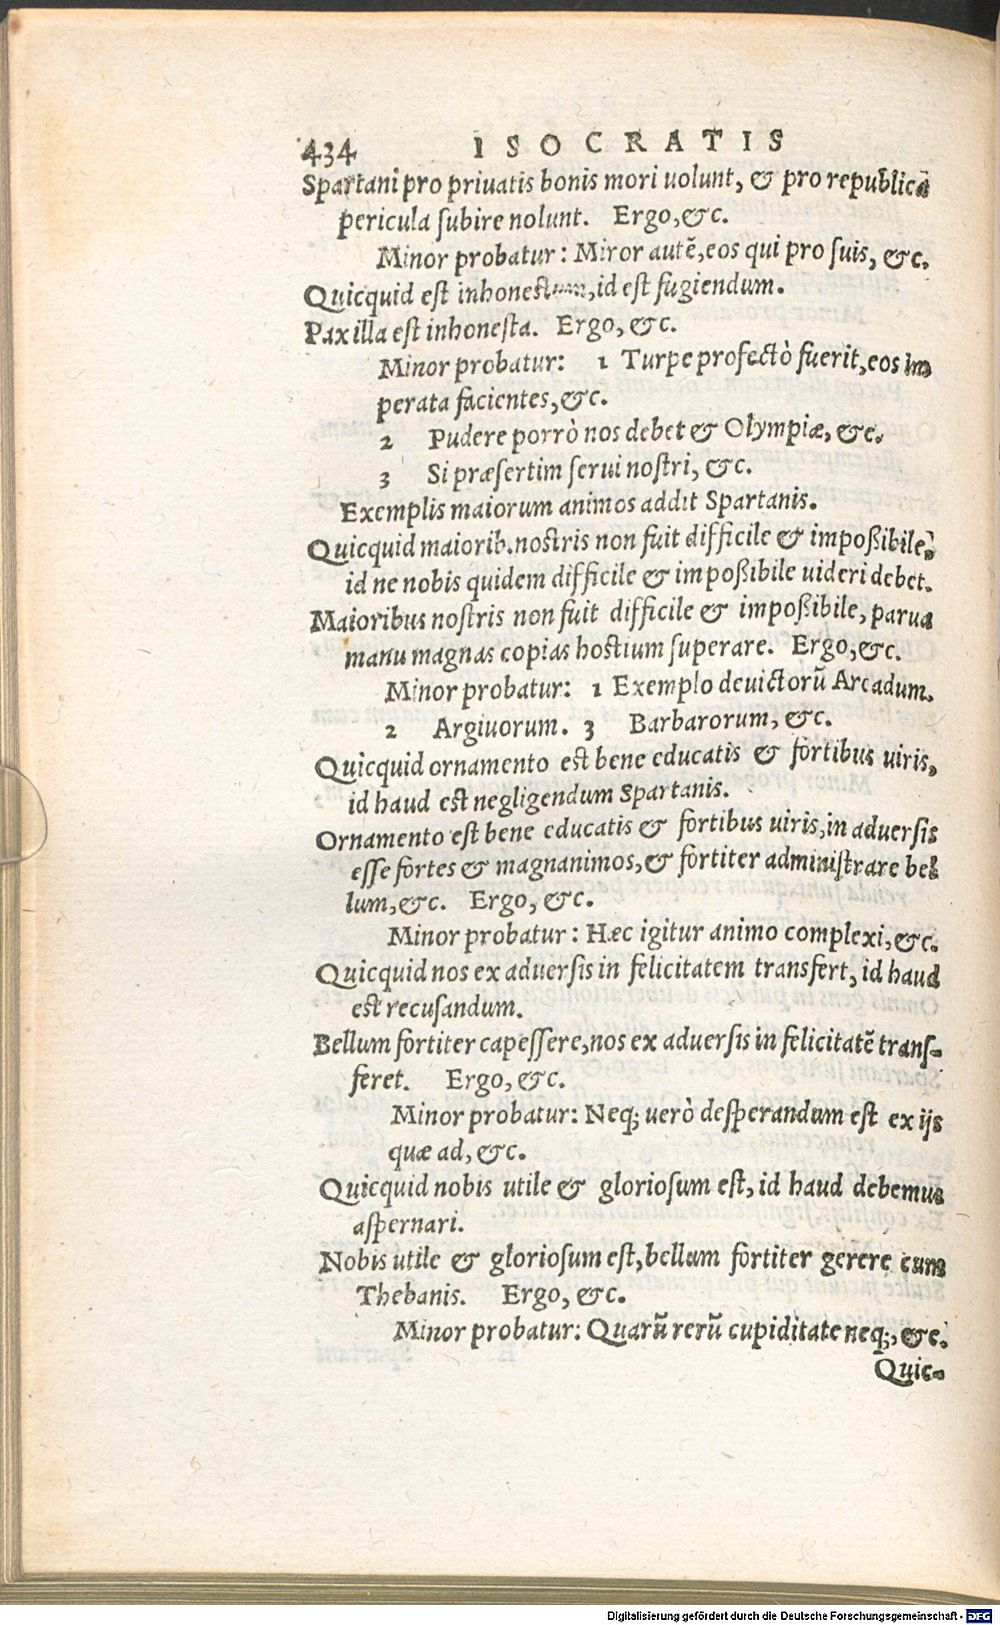 434 ISOCRATIS
Spartani pro priuatis bonis mori uolunt, & pro republicā
pericula subire nolunt. Ergo, &c.
Minor probatur: Miror autē, eos qui pro suis, &c.
Quicquid est inhonestum, id est fugiendum.
Pax illa est inhonesta. Ergo, &c.
Minor probatur: 1 Turpe profectò fuerit, eos im
perata facientes, &c.
2 Pudere porrò nos debet & Olympiæ, &c.
3 Si præsertim serui nostri, &c.
Exemplis maiorum animos addit Spartanis.
Quicquid maiorib. nostris non fuit difficile & impoßibile,
id ne nobis quidem difficile & impoßibile uideri debet.
Maioribus nostris non fuit difficile & impoßibile, parua
manu magnas copias hostium superare. Ergo, &c.
Minor probatur: 1 Exemplo deuictorū Arcadum.
2 Argiuorum. 3 Barbarorum, &c.
Quicquid ornamento est bene educatis & fortibus uiris,
id haud est negligendum Spartanis.
Ornamento est bene educatis & fortibus uiris, in aduersis
esse fortes & magnanimos, & fortiter administrare bel
lum, &c. Ergo, &c.
Minor probatur: Hæc igitur animo complexi, &c.
Quicquid nos ex aduersis in felicitatem transfert, id haud
est recusandum.
Bellum fortiter capessere, nos ex aduersis in felicitatē trans-
feret. Ergo, &c.
Minor probatur: Neq; uerò desperandum est ex ijs
quæ ad, &c.
Quicquid nobis utile & gloriosum est, id haud debemus
aspernari.
Nobis utile & gloriosum est, bellum fortiter gerere cum
Thebanis. Ergo, &c.
Minor probatur: Quarū rerū cupiditate neq;, &c.
Quic-
Digitalisierung gefördert durch die Deutsche Forschungsgemeinschaft - DFG